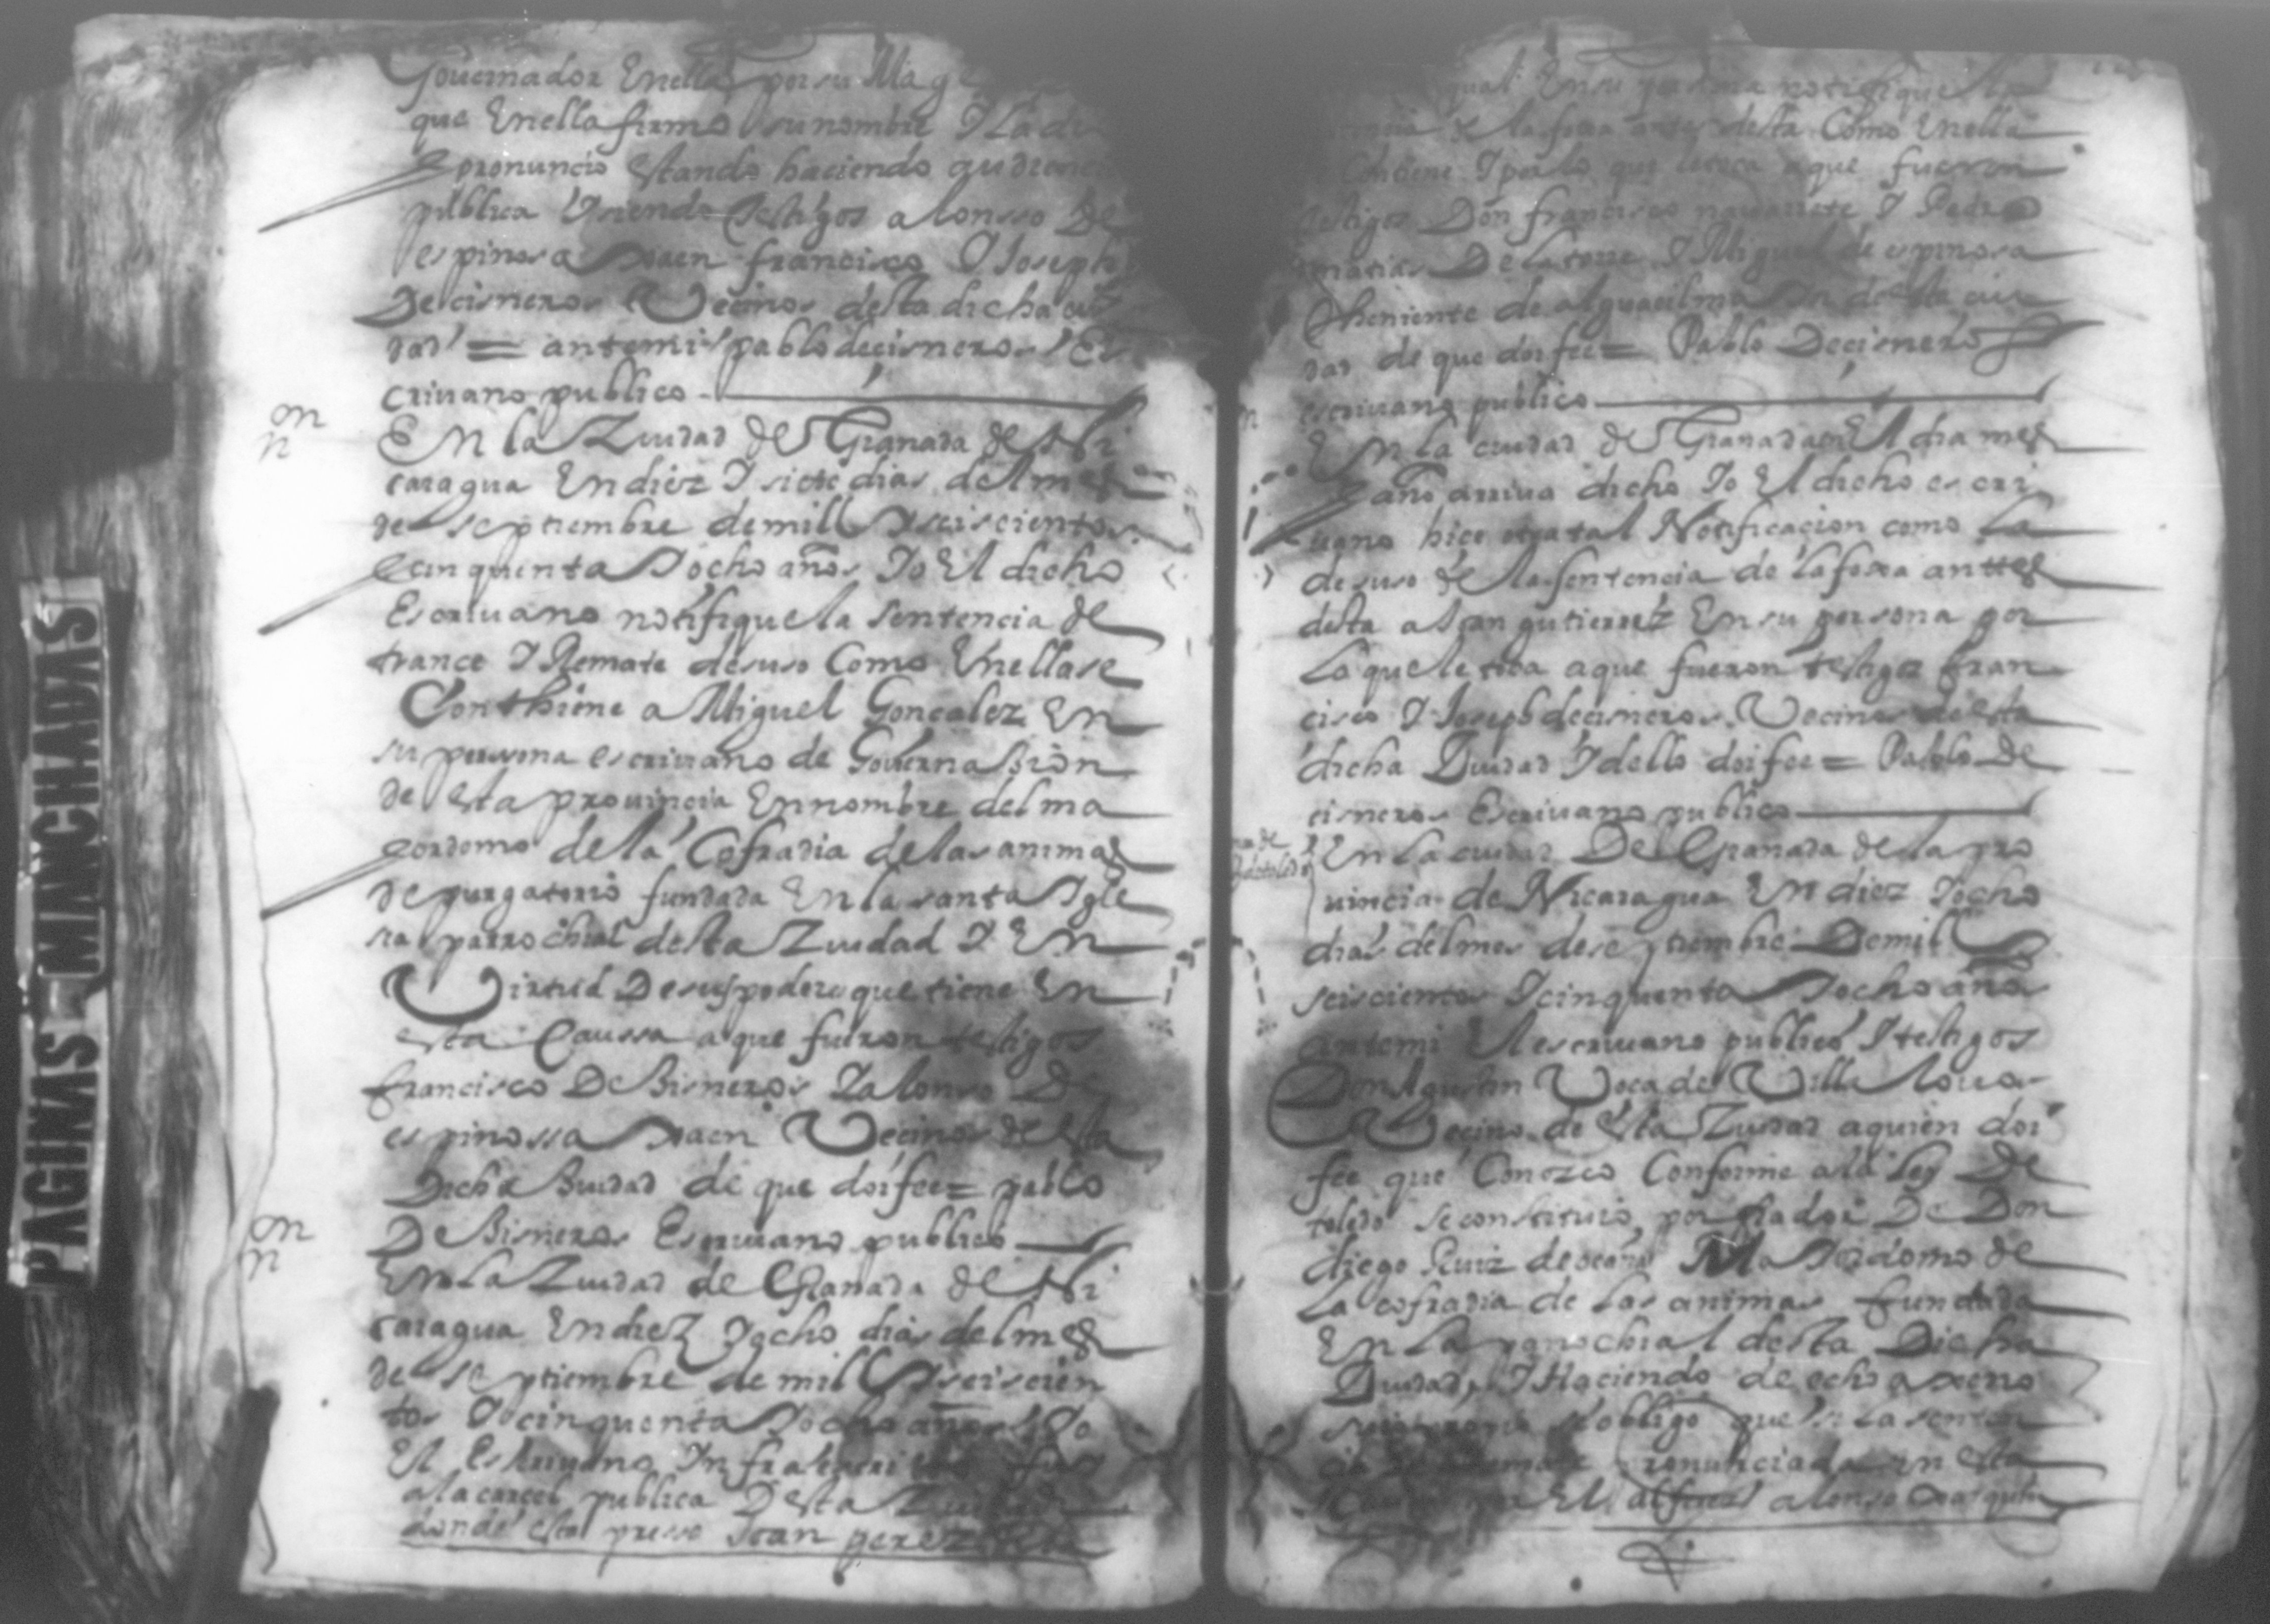 Gouernador Enella por su Mag
que Enella firmo su nombre I La di
e pronuncio estando haciendo audienci
publica Isiendo testigos alonsso De
espinosa Jaen francisco I Joseph
De cisneros Vecinos desta dicha ciu
dad = antemi pablo de cisneros Es
criuano publico
En la Ziudad de Granada de Ni
caragua En diez I siete dias del mes
de septiembre de mill I seiscientos
e cinquenta I ocho años Io El dicho
Escriuano notifique la sentencia de
trance I Remate desuso Como Enella se
Conthiene a Miguel Gonçalez En
su persona escriuano de Gouernassion
de esta prouincia En nombre del ma
yordomo de la Cofradia de las animas
de purgatorio fundada En la santa Igle
sia parrochial desta Ziudad I En
Virtud De su poder que tiene En
esta Caussa a que fueron testigos
francisco De Sisneros I alonso De
espinossa Jaen Vecinos de esta
Dicha Siudad de que doi fee = pablo
De Sisneros Escriuano publico
En La Ziudad de Granada de Ni
caragua En diez I ocho dias del mes
de septiembre de mil I seiscien
tos I cinquenta I ocho años Io
El Escriuano Infraescri
a la carcel publica Desta Ziudad
donde esta presso Joan perez
qual En su persona notifique la
de la foxa antes desta Como Enella
Contiene I por lo que le toca a que fueron
testigos Don francisco nauarrete I Pedro
matias De la torre I Miguel de espinosa
theniente de alguacil maior de esta ciu
dad de que doi fee = Pablo De cisneros
escriuano publico
En La ciudad de Granada en El dia mes
e año arriua dicho Io El dicho escri
uano hice otra tal Notificacion como La
desuso de la sentencia de la foxa antes
desta a Joan gutierrez En su persona por
Lo que le toca a que fueron testigos fran
cisco I Joseph de cisneros Vecinos de esta
dicha Ziudad I dello doi fee = Pablo De
cisneros Escriuano publico
En La ciudad De Granada de la pro
uincia de Nicaragua En diez I ocho
dias del mes de septiembre De mil
seiscientos I cinquenta I ocho años
antemi El escriuano publico I testigos
Don Agustin Vaca de Villa
Vecino de Esta Ziudad a quien doi
fee que Conozco Conforme a la ley De
toledo se constituio por fiador De Don
diego Ruiz de ocaña Maiordomo de
La cofradia de Las animas fundada
En La parrochial desta Dicha
Ziudad I Haciendo de echo axeno
suio propio se obligo que si La senten
cia de remate pronunciada en esta
causa por El alferez alonso
PAGINAS MANCHADAS